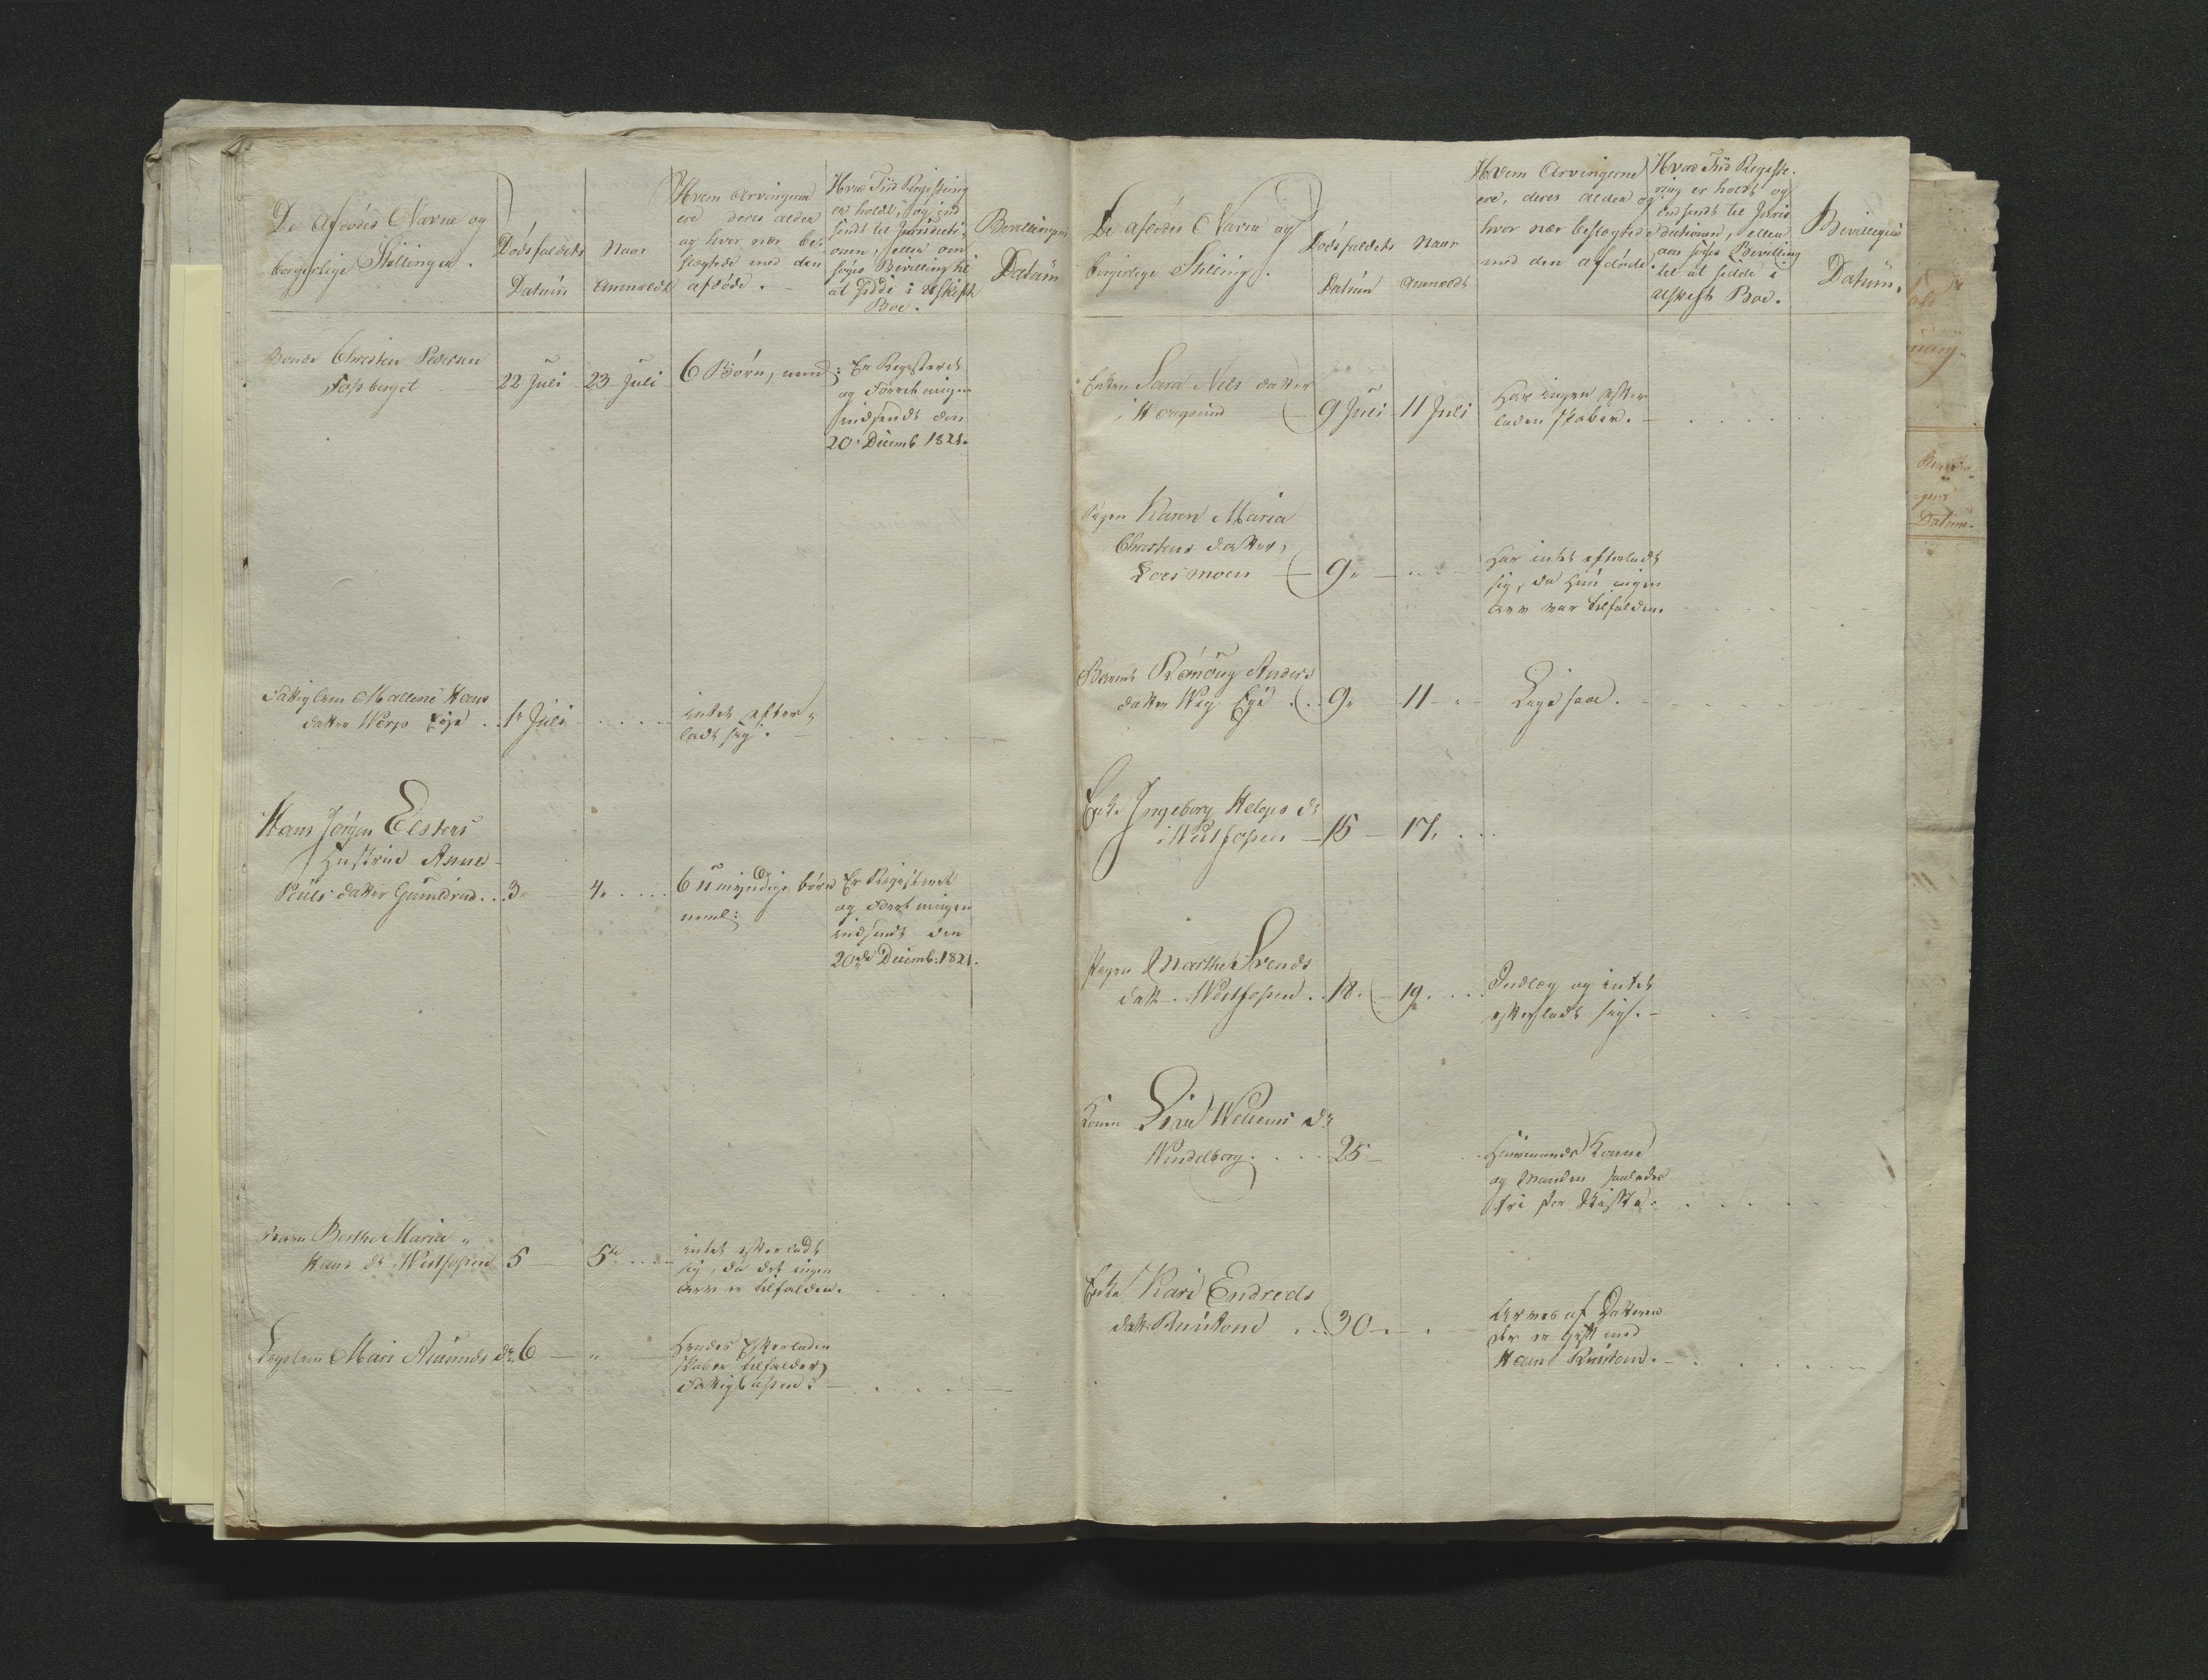 De Afdødes Navne og
borgerlige Stillinger.
Dødsfaldets
Datum
Naar
Anmeldt
Hvem Arvingerne
ere deres alder
og hvor nær be-
slægtede med den
afdøde.
Hvad Tiid Registering
er holdt, og ind
sendt til Jurisdicti-
onen, eller om
søges Bevilling til
at sidde i Uskift
Boe.
Bevillingens
Datum
Bonde Christen Pedersen
Fossberget
22 Juli
23 Juli
6 Børn, neml:
Er Registeret
og Forretningen
indsendt den
20 Decemb 1821.
Fattiglem Mallene Hans
datter Eije
1 Juli
intet efter-
ladt sig.
Hans Jørgen Elsters
Hustrue Anne
Povels datter
3
4
6 Umyndige børn
neml:
Er Registeret
og Forretningen
indsendt den
20de Decemb. 1821.
Berthe Maria
Hans dr Westfossen
5
5te
intet efterladt
sig, da det ingen
Arv er tilfalden.
Lægslem Mari Amunds dr
6
Hendes Efterladen
skaber tilfalder
Fattigkassen.
De afdødes Navne og
borgerlige Stilling.
Dødsfaldets
Datum
Naar
Anmeldt
Hvem Arvingerne
ere, deres alder og
hvor nær beslægtede
med den afdøde.
Hvad Tiid Registe-
ring er holdt og
indsendt til Juris
dictionen, eller
om søges Bevilling
til at sidde i
uskift Boe.
Bevillingens
Datum.
Enken Sara Nels datter
i
9 Juli
11 Juli
Har ingen Efter
ladenskaber.
Pigen Karen Maria
Christens datter,
Loesmoen
9
Har intet efterladt
sig, da Hun ingen
Arv var tilfalden.
Barnet Rønnoug Anders
datter Eije
9
11
Ligesaa.
Enke Ingeborg Helges dr
i Westfossen
15
17
Pigen Marthe Svends
datt. Westfossen
18
19
Indlæg og intet
efterladt sig.
Konen Siri Willums dr
Wendelborg
25
Huusmands Kone
og Manden saaledes
fri for Skifte.
Enke Kari Endreds
datt.
30
Arves af Datteren
der er gift med
Hans